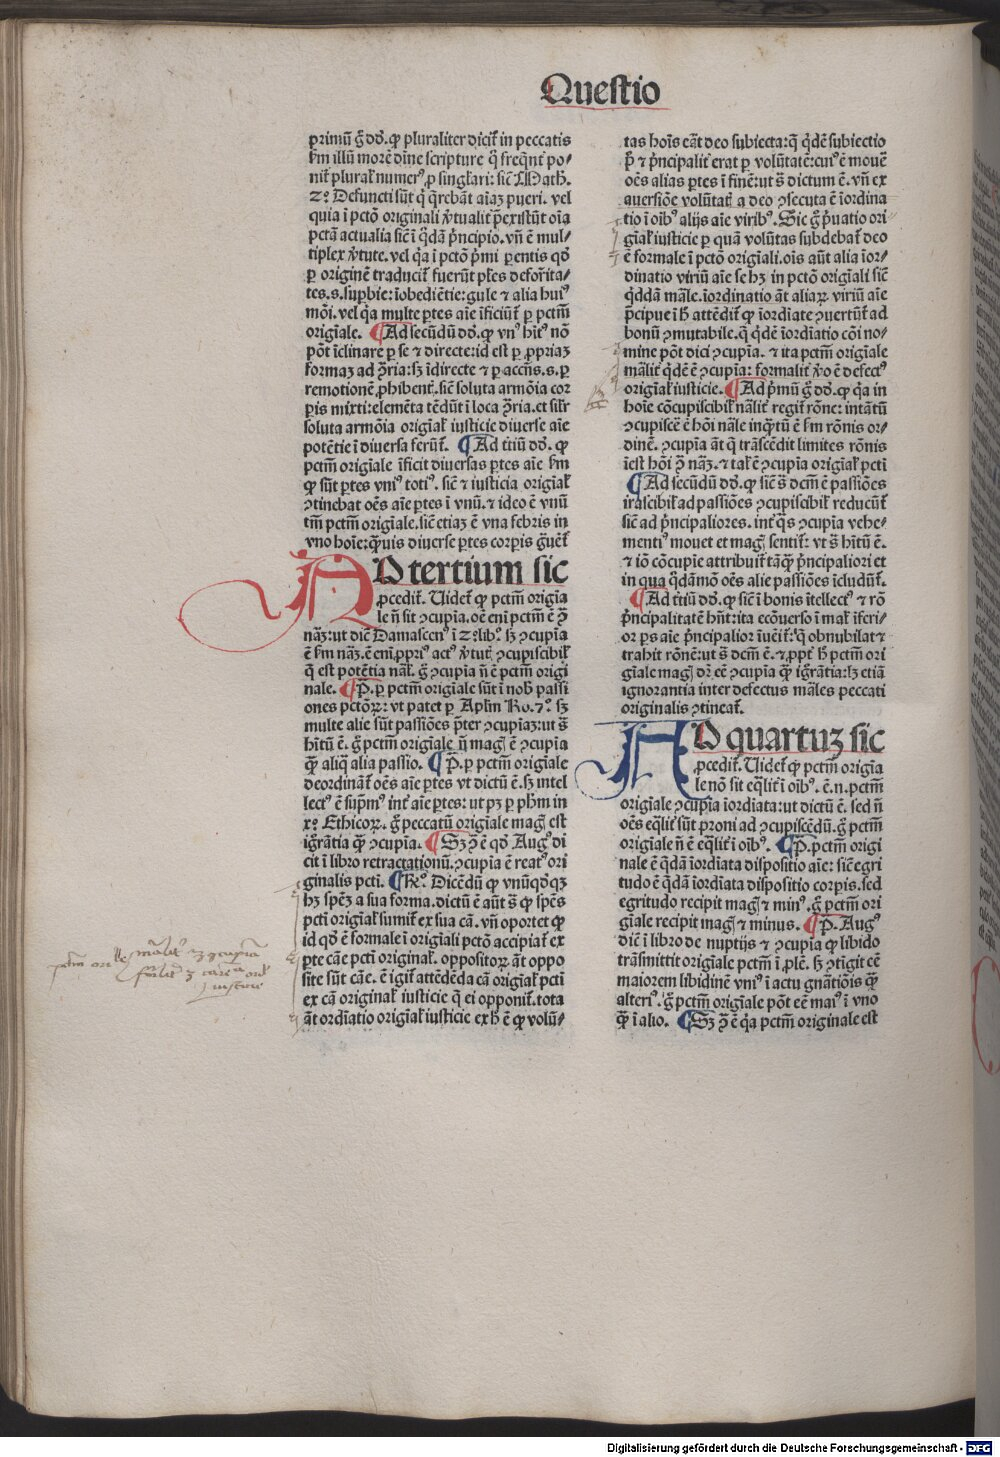 Questio
primū ḡ dd. ꝙ pluraliter dicit̄ in peccatis
ẜm illū morē diīne scripture q̄ freqn̄t po⸗
nit̄ plural̄ numerꝰ ꝓ singl̄ari: sic̄ Math.
2º Defuncti sūt q̇ q̄rebāt aīaꝫ pueri. vel
quia ī pctō originali v̇tualit̄ p̄existūt oīa
pctā actualia sic̄ ī q̇dā pn̄cipio. vn̄ ē mul⸗
tiplex v̇tute. vel q̇a ī pctō pͥmi parentis qd̄
ꝑ originē traducit̄ fuerūt plēs deformita⸗
tes. s. suꝑbie: īobediētie: gule ⁊ alia huiꝰ
mōi. vel q̇a multe ꝑtes aīe īficiūt̄ ꝑ pctm̄
origiale. ¶ Ad secūdū dd. ꝙ vnꝰ hītꝰ nō
pōt īclinare ꝑ se ⁊ directe: id est ꝑ ꝓpriaꝫ
formaꝫ ad ꝯria: sꝫ īdirecte ⁊ ꝑ accn̄s. s. ꝑ
remotionē ꝓhibent̄. sic̄ soluta armōia cor
ꝑis mixti: elemēta tēdūt ī loca ꝯria. et sil̄r
soluta armōia origial̄ iusticie diuerse aīe
potētie ī diuersa ferūt̄. ¶ Ad t̄tiū dd. ꝙ
pctm̄ origiale īficit diuersas ꝑtes aīe ẜm
ꝙ sūt ꝑtes vniꝰ totiꝰ. sic̄ ⁊ iusticia origial̄
ꝯtinebat oēs aīe ꝑtes ī vnū. ⁊ ideo ē vnū
tm̄ pctm̄ origiale. sic̄ etiaꝫ ē vna febris in
vno hoīe: q̄uis diuerse ꝑtes corꝑis ḡuēt̄
AD tertium sic
ꝓcedit̄. Uidet̄ ꝙ pctm̄ origia
le n̄ sit ꝯcupīa. oē enī pctm̄ ē ꝯ̄
nāꝫ: ut dic̄ Damascenꝰ ī 2º libº. sꝫ ꝯcupīa
ē ẜm nāꝫ. ē enī ꝓpriꝰ actꝰ v̇tut̄ ꝯcupiscibil̄
q̄ est potētia nāl̄. ḡ ꝯcupīa n̄ ē pctm̄ origi
nale. ¶ P̄. ꝑ pctm̄ origiale sūt ī nob̄ passi
ones pctōꝝ: vt patet ꝑ Apl̄m Ro. 7º. sꝫ
multe alie sūt passiōes pͣter ꝯcupīaꝫ: ut s̄
hītū ē. ḡ pctm̄ origiale n̄ magꝭ ē ꝯcupīa
ꝙ̄ aliq̄ alia passio. ¶ P̄. ꝑ pctm̄ origiale
deordinat̄ oēs aīe ꝑtes vt dictū ē. sꝫ intel
lectꝰ ē supͣmꝰ int̄ aīe ꝑtes: ut pꝫ ꝑ ph̄m in
xº Ethicoꝝ. ḡ peccatū origiale magꝭ est
igͦrātia ꝙ̄ ꝯcupīa. ¶ Sꝫ ꝯ̄ ē qd̄ Augꝰ di
cit ī libro retractationū. ꝯcupīa ē reatꝰ ori
ginalis pcti. ¶ Rº. Dicēdū ꝙ vnūqd̄qꝫ
hꝫ spēꝫ a sua forma. dictū ē aūt s̄ ꝙ spēs
pcti origial̄ sumit̄ ex sua cā. vn̄ oportet ꝙ
id qd̄ ē formale ī origiali pctō accipiat̄ ex
ꝑte cāe pcti original̄. oppositoꝝ āt oppo
site sūt cāe. ē igit̄ attēdēda cā origial̄ pcti
ex cā original̄ iusticie q̄ ei opponit̄. tota
āt ordīatio origial̄ iusticie ex h̄ ē ꝙ volū⸗
tas hoīs eāt deo subiecta: q̄ q̇dē subiectio
p̄ ⁊ pͥncipalit̄ erat ꝑ volūtatē: cuiꝰ ē mouē
oēs alias ꝑtes ī finē: ut s̄ dictum ē. vn̄ ex
auersiōe volūtat̄ a deo ꝯsecuta ē īordina
tio ī oībꝰ alijs aīe viribꝰ. Sic ḡ pͥuatio ori
giāl̄ iusticie ꝑ quā volūtas subdebat̄ deo
ē formale ī pctō origiali. oīs aūt alia īor⸗
dinatio viriū aīe se hꝫ in pctō origiali sic̄
q̇ddā māle. īordinatio āt aliaꝝ viriū aīe
pͣcipue ī h̄ attēdit̄ ꝙ īordiate ꝯuertūt̄ ad
bonū ꝯmutabile. q̄ q̇dē īordiatio cōi no⸗
mine pōt dici ꝯcupīa. ⁊ ita pctm̄ origiale
mālit̄ q̇dē ē ꝯcupīa: formalit̄ v̇o ē defectꝰ
origial̄ iusticie. ¶ Ad pͥmū ḡ dd. ꝙ q̇a in
hoīe cōcupiscibil̄ nālit̄ regit̄ rōne: intātū
ꝯcupiscē ē hōi nāle inqͣtū ē ẜm rōnis or⸗
dinē. ꝯcupīa āt q̄ trāscēdit limites rōnis
īest hōi ꝯ̄ nāꝫ. ⁊ tal̄ ē ꝯcupīa origial̄ pcti
¶ Ad secūdū dd. ꝙ sic̄ s̄ dcm̄ ē passiōes
irascibil̄ ad passiōes ꝯcupiscibil̄ reducūt̄
sic̄ ad pͥncipaliores. int̄ q̄s ꝯcupīa vehe⸗
mentiꝰ mouet et magꝭ sentit̄: vt s̄ hītū ē.
⁊ iō cōcupīe attribuit̄ tāqͣ pͥncipaliori et
in qua q̇dāmō oēs alie passiōes īcludūt̄.
¶ Ad t̄tiū dd. ꝙ sic̄ ī bonis ītellectꝰ ⁊ rō
pͥncipalitatē hn̄t: ita ecōuerso ī mal̄ īferi⸗
or ꝑs aīe pͥncipalior īuēit̄: q̄ obnubilat ⁊
trahit rōnē: ut s̄ dcm̄ ē. ⁊ ꝓpt̄ h̄ pctm̄ ori
giale magꝭ dr̄ eē ꝯcupīa ꝙ̄ igͦrātia: lꝫ etiā
ignorantia inter defectus māles peccati
originalis ꝯtineat̄.
AD quartuꝫ sic
ꝓcedit̄. Uidet̄ ꝙ pctm̄ origia
le nō sit eq̄lit̄ ī oībꝰ. ē. n. pctm̄
origiale ꝯcupīa īordiata: ut dictū ē. sed n̄
oēs eq̄lit̄ sūt proni ad ꝯcupiscēdū. ḡ pctm̄
origiale n̄ ē eq̄lit̄ ī oībꝰ. ¶ P̄. pctm̄ origi
nale ē q̄dā īordiata dispositio aīe: sic̄ egri
tudo ē q̄dā īordiata dispositio corpis. sed
egritudo recipit magꝭ ⁊ minꝰ. ḡ pctm̄ ori
giale recipit magꝭ ⁊ minus. ¶ P̄. Augꝰ
dic̄ ī libro de nuptijs ⁊ ꝯcupīa ꝙ libido
trāsmittit origiale pctm̄ ī ꝓlē. sꝫ ꝯtīgit eē
maiorem libidinē vniꝰ ī actu gn̄atiōis ꝙ̄
alteriꝰ. ḡ pctm̄ origiale pōt eē maiꝰ ī vno
ꝙ̄ ī alio. ¶ Sꝫ ꝯ̄ ē q̇a pctm̄ originale est
Digitalisierung gefördert durch die Deutsche Forschungsgemeinschaft - DFG